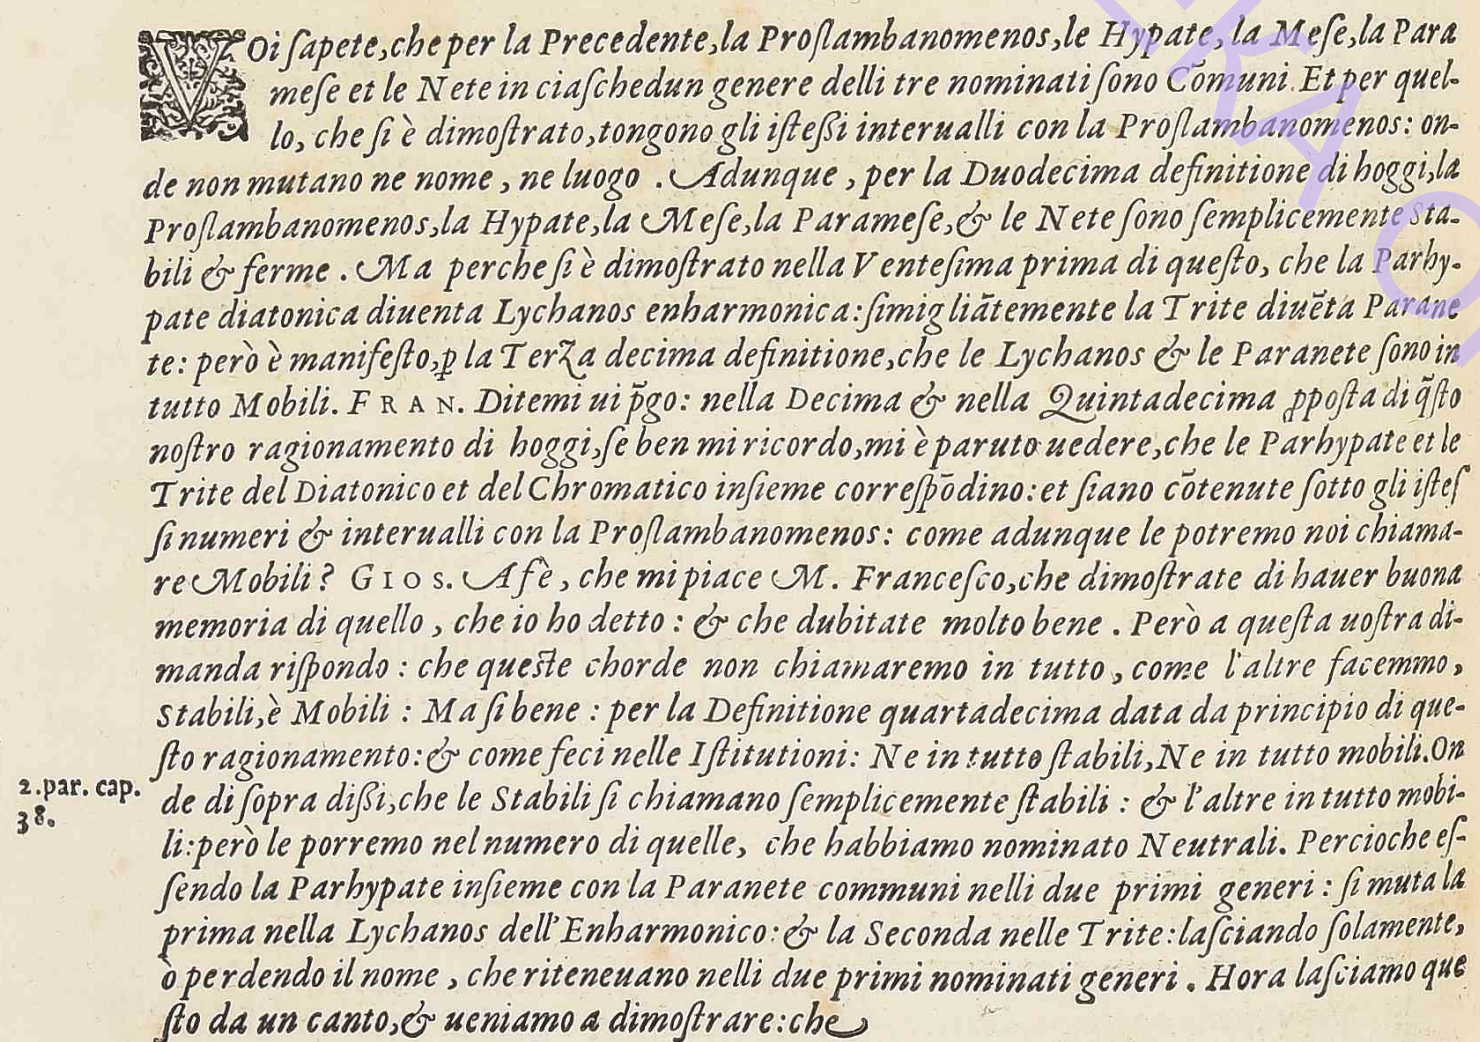 VOi ſapete, che per la Precedente, la Proſlambanomenos, le Hypate, la Meſe, la Para
meſe et le Nete in ciaſchedun genere delli tre nominati ſono Cōmuni. Et per quel-
lo, che ſi è dimoſtrato, tongono gli iſteßi interualli con la Proſlambanomenos: on-
de non mutano ne nome, ne luogo. Adunque, per la Duodecima definitione di hoggi, la
Proſlambanomenos, la Hypate, la Meſe, la Parameſe, & le Nete ſono ſemplicemente Sta-
bili & ferme. Ma perche ſi è dimoſtrato nella Venteſima prima di queſto, che la Parhy-
pate diatonica diuenta Lychanos enharmonica: ſimigliãtemente la Trite diuẽta Parane
te: però è manifeſto, ꝑ la Terza decima definitione, che le Lychanos & le Paranete ſono in
tutto Mobili. FRAN. Ditemi ui p̄go: nella Decima & nella Quintadecima ꝓpoſta di q̄ſto
noſtro ragionamento di hoggi, ſe ben mi ricordo, mi è paruto uedere, che le Parhypate et le
Trite del Diatonico et del Chromatico inſieme correſpōdino: et ſiano cōtenute ſotto gli iſteſ
ſi numeri & interualli con la Proſlambanomenos: come adunque le potremo noi chiama-
re Mobili? GIOS. A fè, che mi piace M. Franceſco, che dimoſtrate di hauer buona
memoria di quello, che io ho detto: & che dubitate molto bene. Però a queſta uoſtra di-
manda riſpondo: che queſte chorde non chiamaremo in tutto, come l'altre facemmo,
Stabili, è Mobili: Ma ſi bene: per la Definitione quartadecima data da principio di que-
ſto ragionamento: & come feci nelle Iſtitutioni: Ne in tutto ſtabili, Ne in tutto mobili. On
2. par. cap.
38.
de di ſopra dißi, che le Stabili ſi chiamano ſemplicemente ſtabili: & l'altre in tutto mobi-
li: però le porremo nel numero di quelle, che habbiamo nominato Neutrali. Percioche eſ-
ſendo la Parhypate inſieme con la Paranete communi nelli due primi generi: ſi muta la
prima nella Lychanos dell'Enharmonico: & la Seconda nelle Trite: laſciando ſolamente,
ò perdendo il nome, che riteneuano nelli due primi nominati generi. Hora laſciamo que
ſto da un canto, & ueniamo a dimoſtrare: che